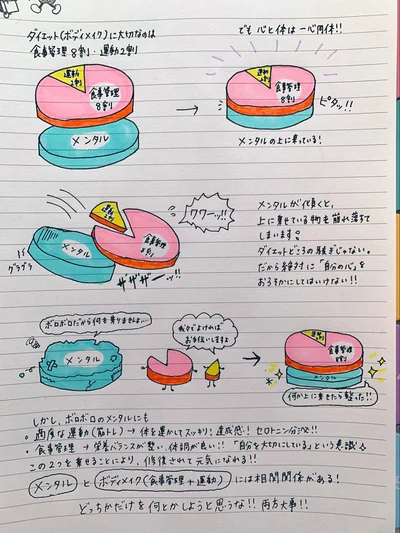 ダイエット(ボディメイク)に大切なのは
食事管理8割・運動2割
でも 心と体は一心同体!!
運動
2割
食事管理
8割
メンタル
→
運動
2割
食事管理
8割
ピタッ!!
メンタルの上に乗っている!
メンタル
グラグラ
運動
2割
食事管理
8割
ワワーッ!!
ザザザーッ!!
メンタルが傾くと、
上に乗せている物も崩れ落ちて
しまいます。
ダイエットどころの騒ぎじゃない。
だから絶対に「自分の心」を
おろそかにしてはいけない!!
ボロボロだから何も乗りませんよ…
メンタル
我々でよければ
お手伝いしますよ
→
運動
2割
食事管理
8割
メンタル
何か上に乗せたら整った!!
しかし、ボロボロのメンタルにも
・適度な運動(筋トレ)→体を動かしてスッキリ!達成感!セロトニン分泌!!
・食事管理→栄養バランスが整い、体調が良い!!「自分を大切にしている」という意識
この2つを乗せることにより、修復されて元気になれる!!
メンタル と ボディメイク(食事管理+運動) には相関関係がある!
どっちかだけを何とかしようと思うな!! 両方大事!!